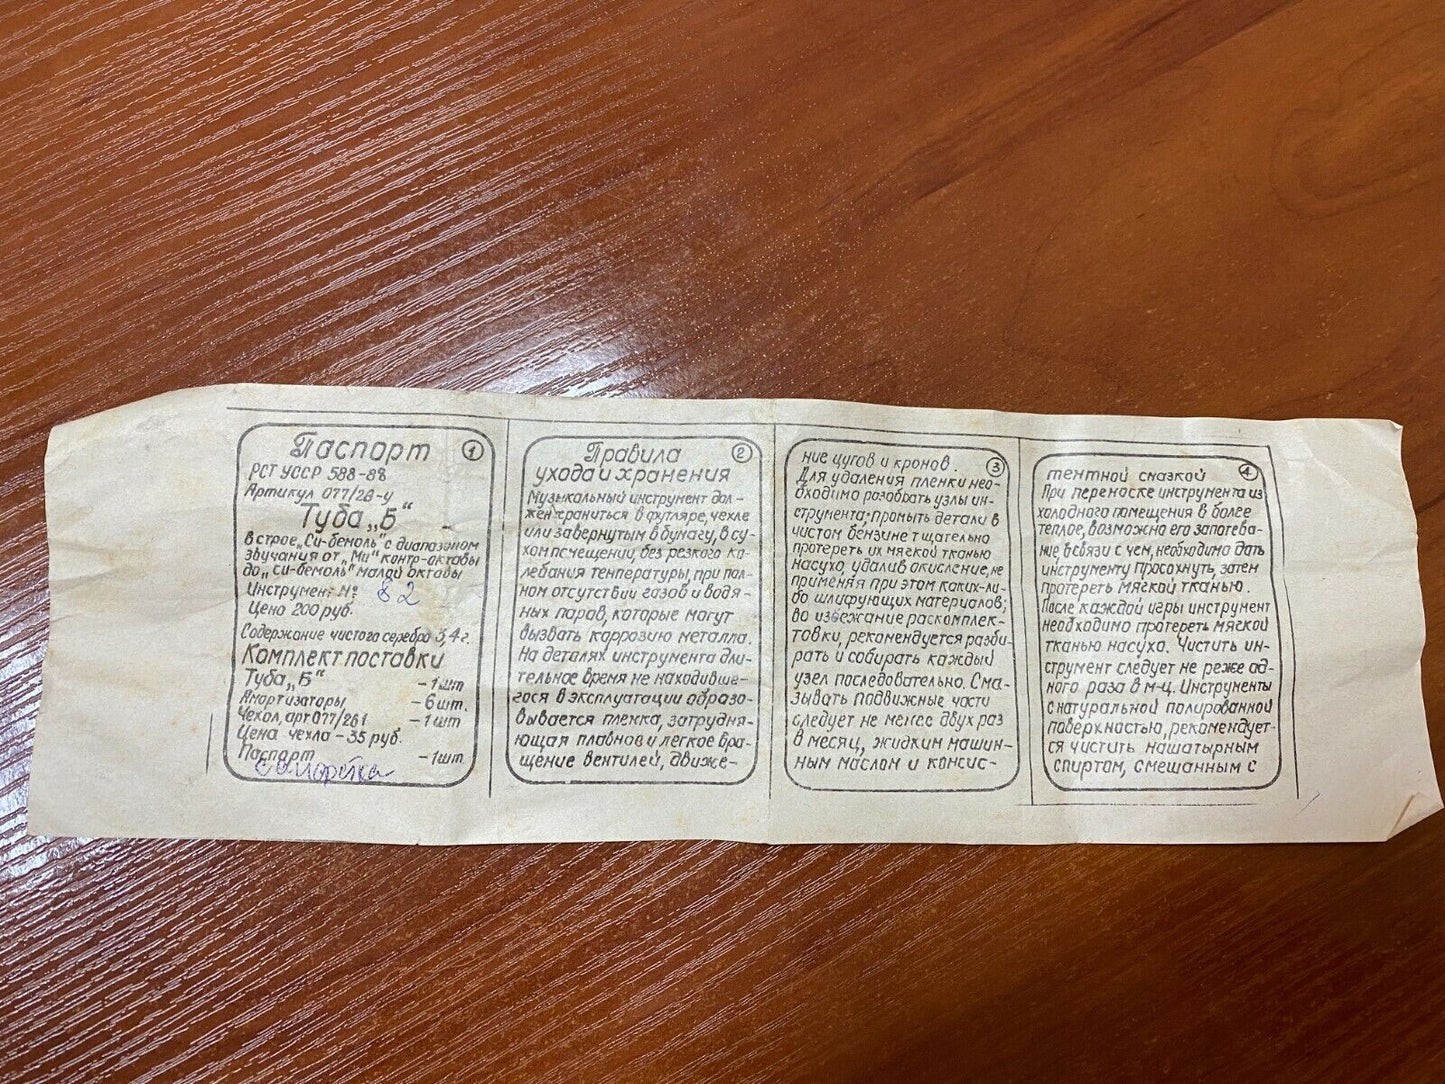 Паспорт
1
РСТ УССР 588-88
Артикул 077/26-у
Туба „Б“
в строе „Си-бемоль“ с диапазоном
звучания от „Ми“ контр-октавы
до „си-бемоль“ малой октавы
Инструмент № 82
Цена 200 руб.
Содержание чистого серебра 3,4 г.
Комплект поставки
Туба „Б“ - 1 шт
Амортизаторы - 6 шт.
Чехол, арт 077/261 - 1 шт
Цена чехла - 35 руб.
Паспорт - 1 шт
Правила
2
ухода и хранения
Музыкальный инструмент дол-
жен храниться в футляре, чехле
или завернутым в бумагу, в су-
хом помещении, без резкого ко-
лебания температуры, при пол-
ном отсутствии газов и водя-
ных паров, которые могут
вызвать коррозию металла.
На деталях инструмента дли-
тельное время не находивше-
гося в эксплуатации образо-
вывается пленка, затрудня-
ющая плавное и легкое вра-
щение вентилей, движе-
ние цугов и кронов.
3
Для удаления пленки нео-
бходимо разобрать узлы ин-
струмента; промыть детали в
чистом бензине тщательно
протереть их мягкой тканью
насухо удалив окисление, не
применяя при этом каких-ли-
бо шлифующих материалов;
во избежание раскомплек-
товки, рекомендуется разби-
рать и собирать каждый
узел последовательно. Сма-
зывать подвижные части
следует не менее двух раз
в месяц, жидким машин-
ным маслом и консис-
тентной смазкой
4
При переноске инструмента из
холодного помещения в более
теплое, возможно его запотева-
ние, в связи с чем, необходимо дать
инструменту просохнуть, затем
протереть мягкой тканью.
После каждой игры инструмент
необходимо протереть мягкой
тканью насухо. Чистить ин-
струмент следует не реже од-
ного раза в м-ц. Инструменты
с натуральной полированной
поверхностью, рекомендует-
ся чистить нашатырным
спиртом, смешанным с